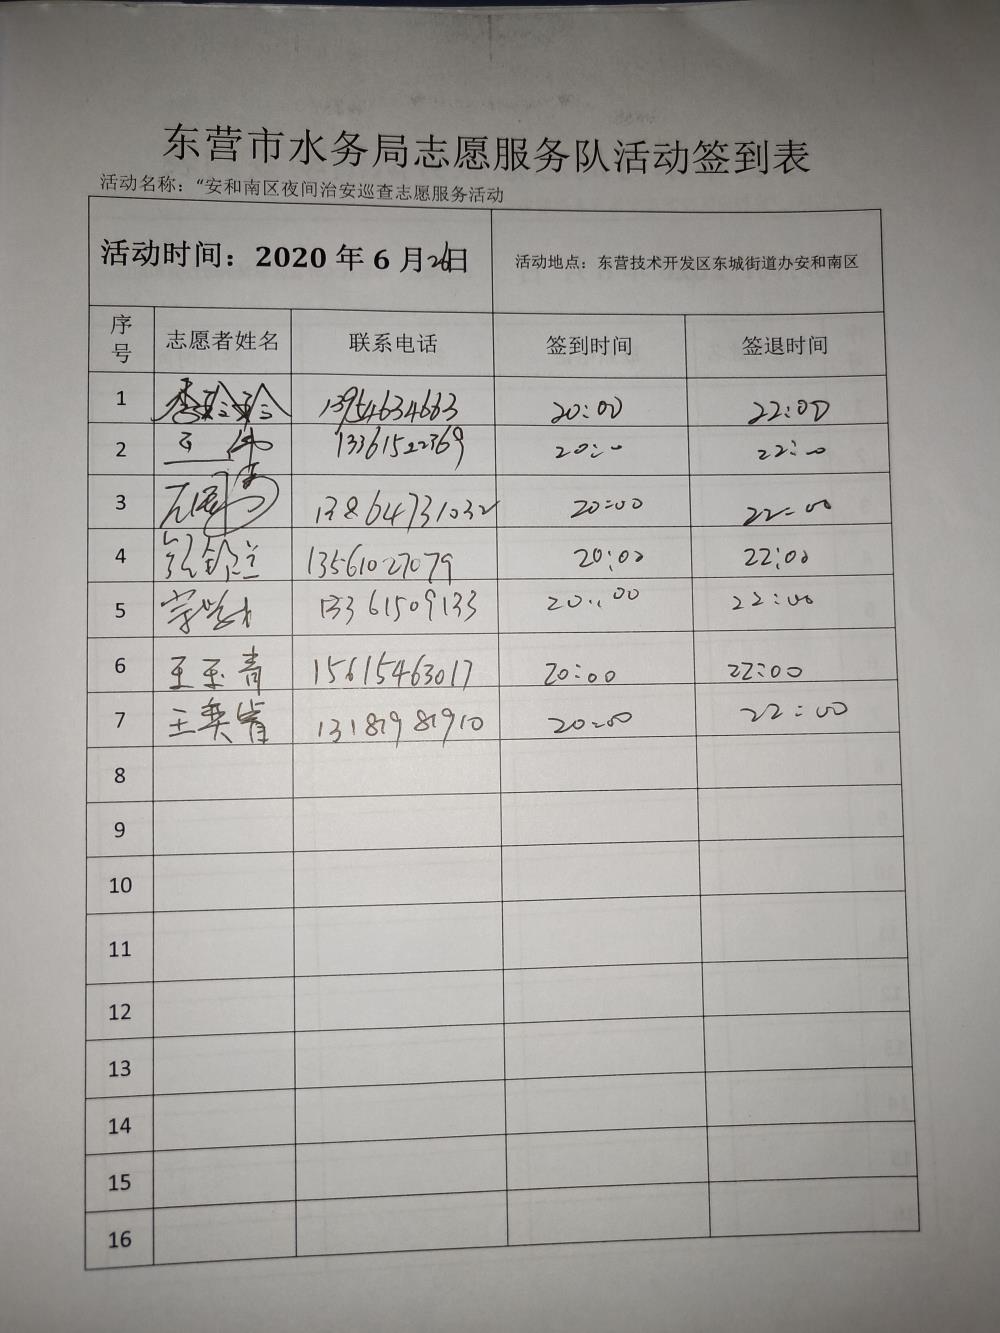 东营市水务局志愿服务队活动签到表
活动名称：“安和南区夜间治安巡查志愿服务活动
活动时间：2020年6月26日 活动地点：东营技术开发区东城街道办安和南区
序号 志愿者姓名 联系电话 签到时间 签退时间
1 李玲玲 13954634663 20:00 22:00
2 13361522369 20:00 22:00
3 13864731032 20:00 22:00
4 13561027079 20:00 22:00
5 13361509133 20:00 22:00
6 王玉青 15615463017 20:00 22:00
7 王奕肖 13181981910 20:00 22:00
8
9
10
11
12
13
14
15
16